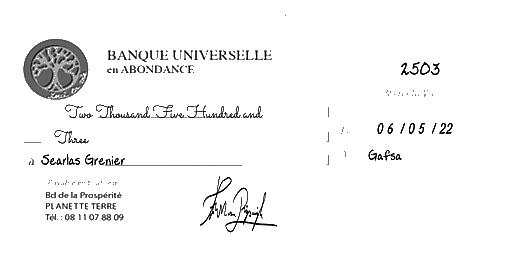 BANQUE UNIVERSELLE
en ABONDANCE
2503
Two Thousand Five Hundred and
Three
06/05/22
à Searlas Grenier
Gafsa
Bd de la Prospérité
PLANETTE TERRE
Tél. : 08 11 07 88 09